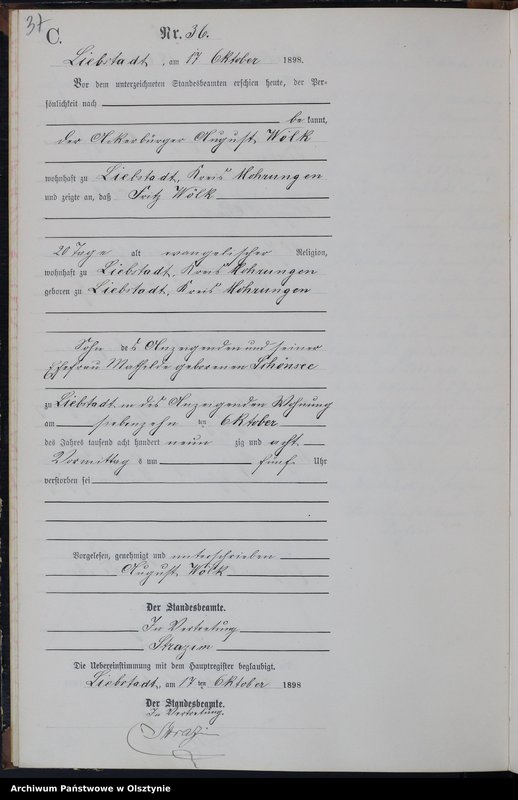 37
C.
Nr. 36.
Liebstadt, am 17 Oktober 1898.
Vor dem unterzeichneten Standesbeamten erschien heute, der Per-
sönlichkeit nach
be kannt,
der Ackerbürger August Wölk
wohnhaft zu Liebstadt, Kreis Mohrungen
und zeigte an, daß Fritz Wölk
20 Tage alt evangelischer Religion,
wohnhaft zu Liebstadt, Kreis Mohrungen
geboren zu Liebstadt, Kreis Mohrungen
Sohn des Anzeigenden und seiner
Ehefrau Mathilde geborenen Schönsee
zu Liebstadt in des Anzeigenden Wohnung
am siebenzehn ten Oktober
des Jahres tausend acht hundert neun zig und acht
Vormittag s um fünf Uhr
verstorben sei
Vorgelesen, genehmigt und unterschrieben
August Wölk
Der Standesbeamte.
In Vertretung
Die Uebereinstimmung mit dem Hauptregister beglaubigt.
Liebstadt, am 17 ten Oktober 1898
Der Standesbeamte.
In Vertretung.
Archiwum Państwowe w Olsztynie